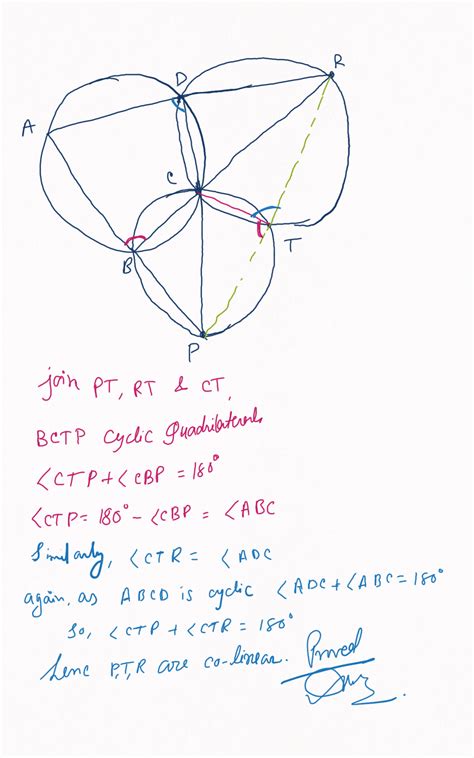 D
R
A
C
T
B
P
join PT, RT & CT,
BCTP cyclic Quadrilateral,
∠CTP + ∠CBP = 180°
∠CTP = 180° - ∠CBP = ∠ABC
Similarly, ∠CTR = ∠ADC
again, as ABCD is cyclic ∠ADC + ∠ABC = 180°
So, ∠CTP + ∠CTR = 180°
henc P,T,R are co-linear. Proved